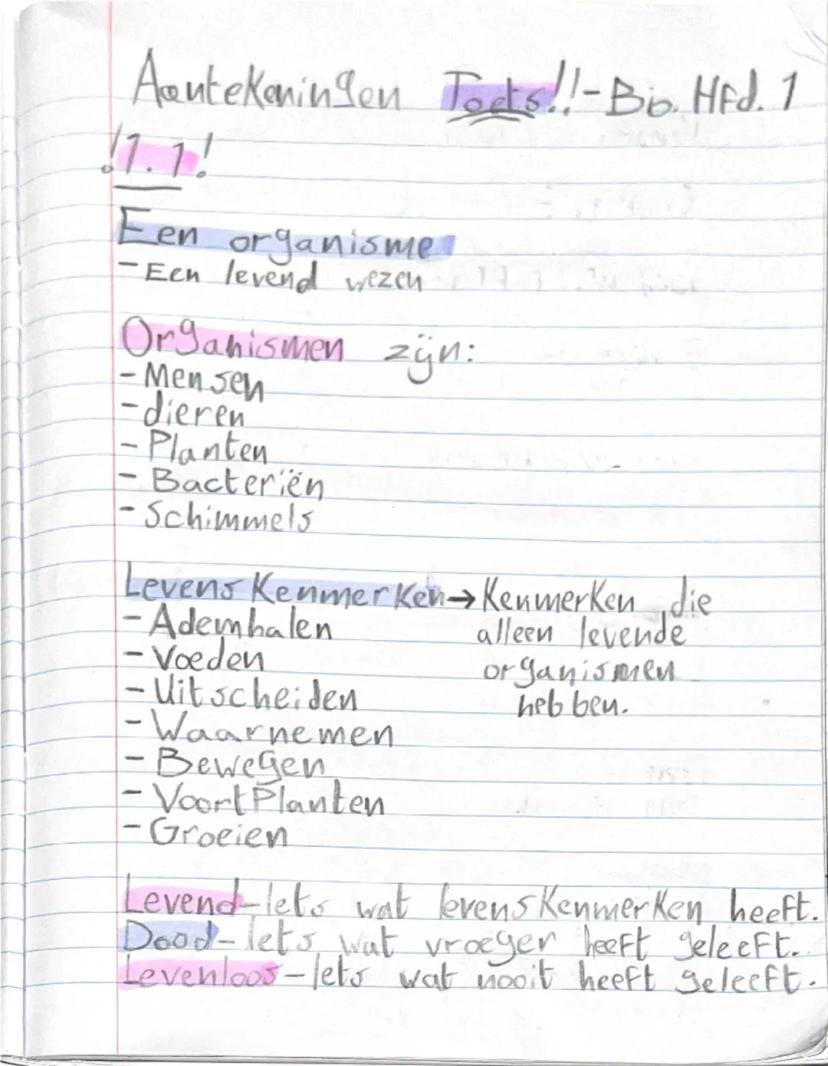 Aantekeningen Toets!!-Bio. Hfd. 1
!1.1!
Een organisme
- Een levend wezen
Organismen zijn:
- Mensen
- dieren
- Planten
- Bacteriën
- Schimmels
Levenskenmerken → Kenmerken die
- Ademhalen alleen levende
- Voeden organismen
- Uitscheiden hebben.
- Waarnemen
- Bewegen
- Voortplanten
- Groeien
Levend-Iets wat levenskenmerken heeft.
Dood-Iets wat vroeger heeft geleeft.
Levenloos-Iets wat nooit heeft geleeft.